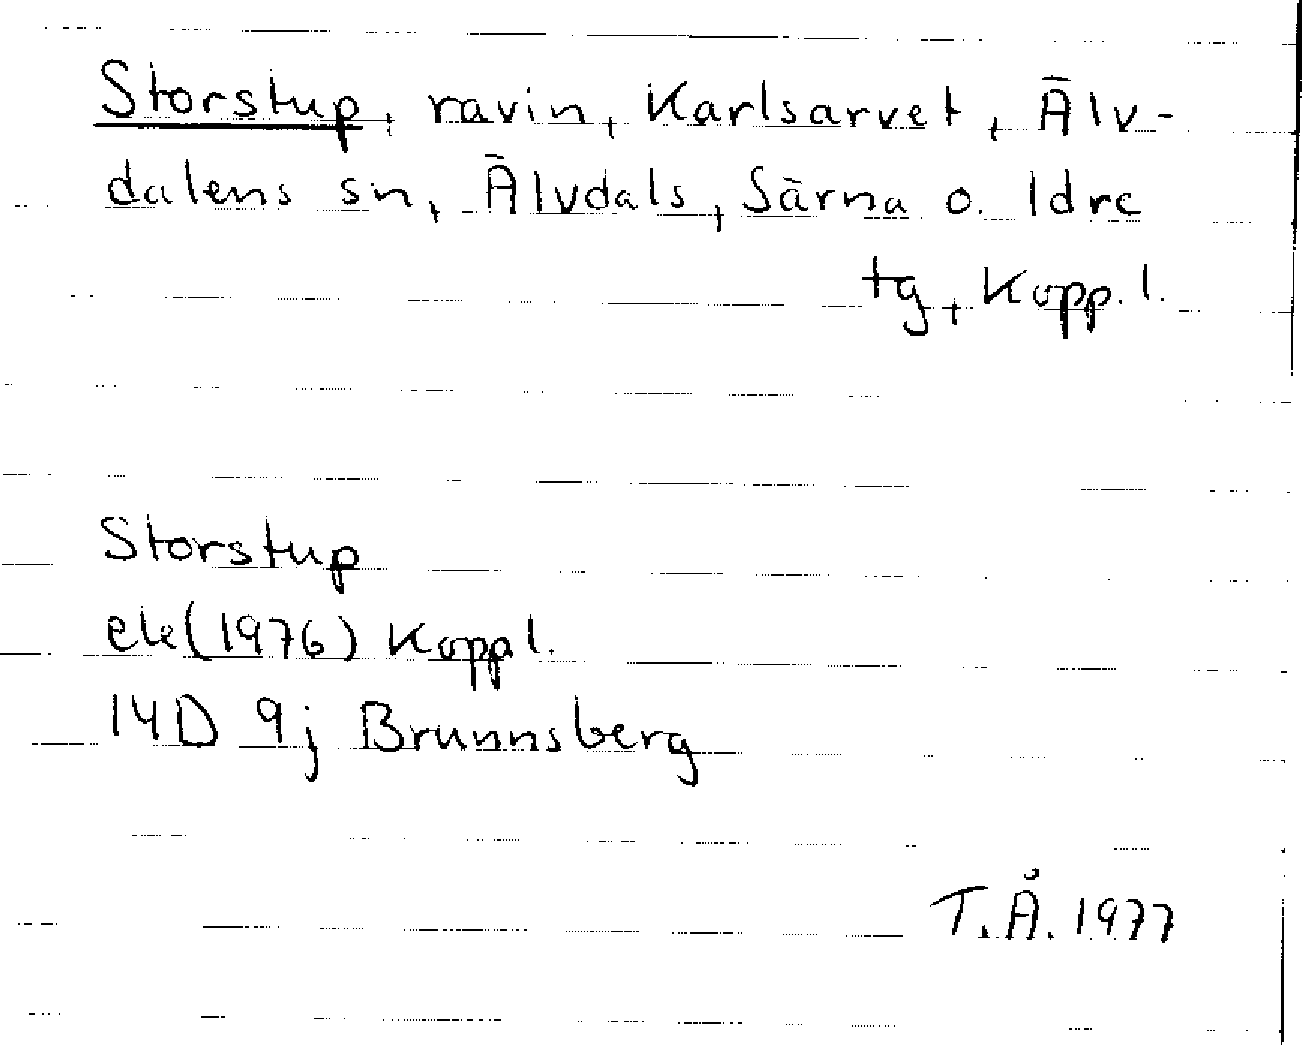 Storstup, ravin, Karlsarvet, Älv-
dalens sn, Älvdals, Särna o. Idre
tg, Kopp. l.
Storstup
ek (1976) Koppl.
14D 9j Brunnsberg
T.Å. 1977